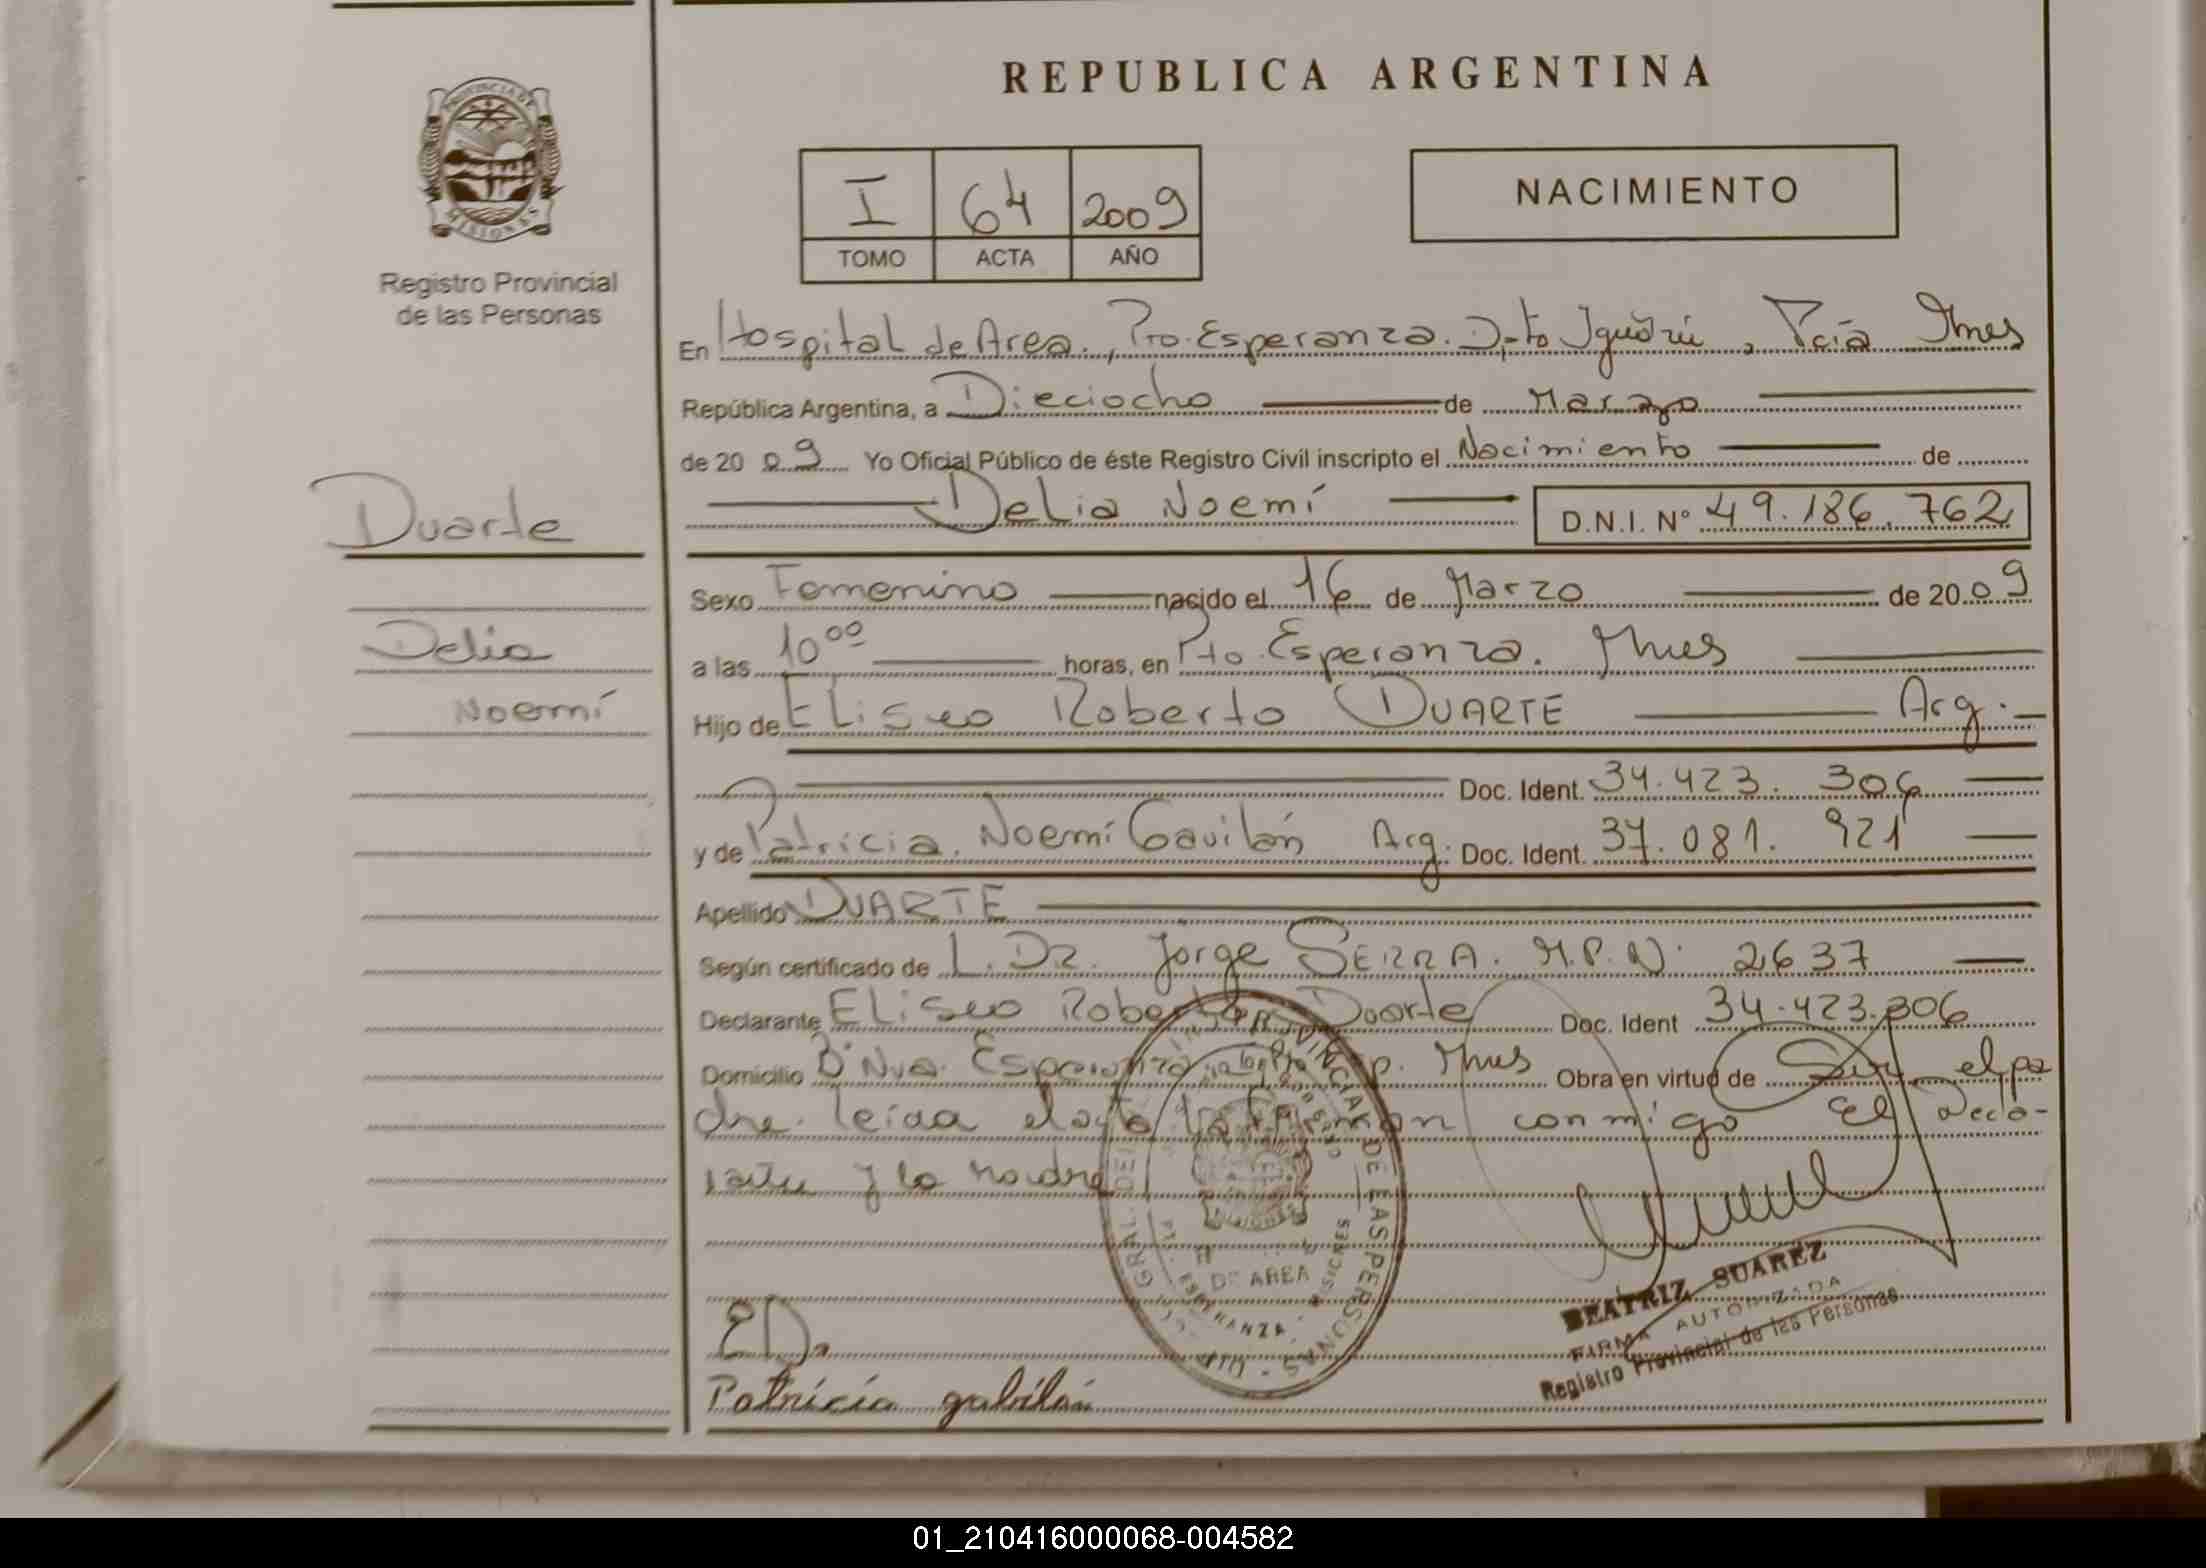 REPUBLICA ARGENTINA
PROVINCIA DE
MISIONES
Registro Provincial
de las Personas
I 64 2009
TOMO ACTA AÑO
NACIMIENTO
En Hospital de Area., Pto. Esperanza. Dpto Iguazú, Pcia Mnes
República Argentina, a Dieciocho de Marzo
de 20 09 Yo Oficial Público de éste Registro Civil inscripto el Nacimiento de
Delia Noemí D.N.I. Nº 49.186.762
Duarte
Delia
Noemí
Sexo Femenino nacido el 16 de Marzo de 20 09
a las 10⁰⁰ horas, en Pto. Esperanza. Mnes
Hijo de Eliseo Roberto DUARTE Arg.
Doc. Ident. 34.423.306
y de Patricia Noemí Gavilán Arg. Doc. Ident. 37.081.921
Apellido DUARTE
Según certificado de L. Dr. Jorge SERRA. M.P.N. 2637
Declarante Eliseo Roberto Duarte Doc. Ident 34.423.306
Domicilio Bº Nva. Esperanza Mnes Obra en virtud de Ser el pa
dre. leida el acta la firman conmigo el Decla-
rante y la madre
DE LAS PERSONAS
DE AREA
ESPERANZA - MISIONES
BEATRIZ SUAREZ
FIRMA AUTORIZADA
Registro Provincial de las Personas
ED.
Patricia gabilán
01_210416000068-004582